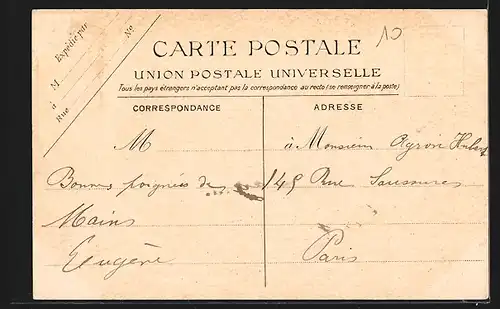 Expédié par
M
à
Rue
No
10
CARTE POSTALE
UNION POSTALE UNIVERSELLE
Tous les pays étrangers n'acceptent pas la correspondance au recto (se renseigner à la poste)
CORRESPONDANCE
M
Bonnes poignées de
Mains
Eugène
ADRESSE
à Monsieur
145 Rue Saussures
Paris